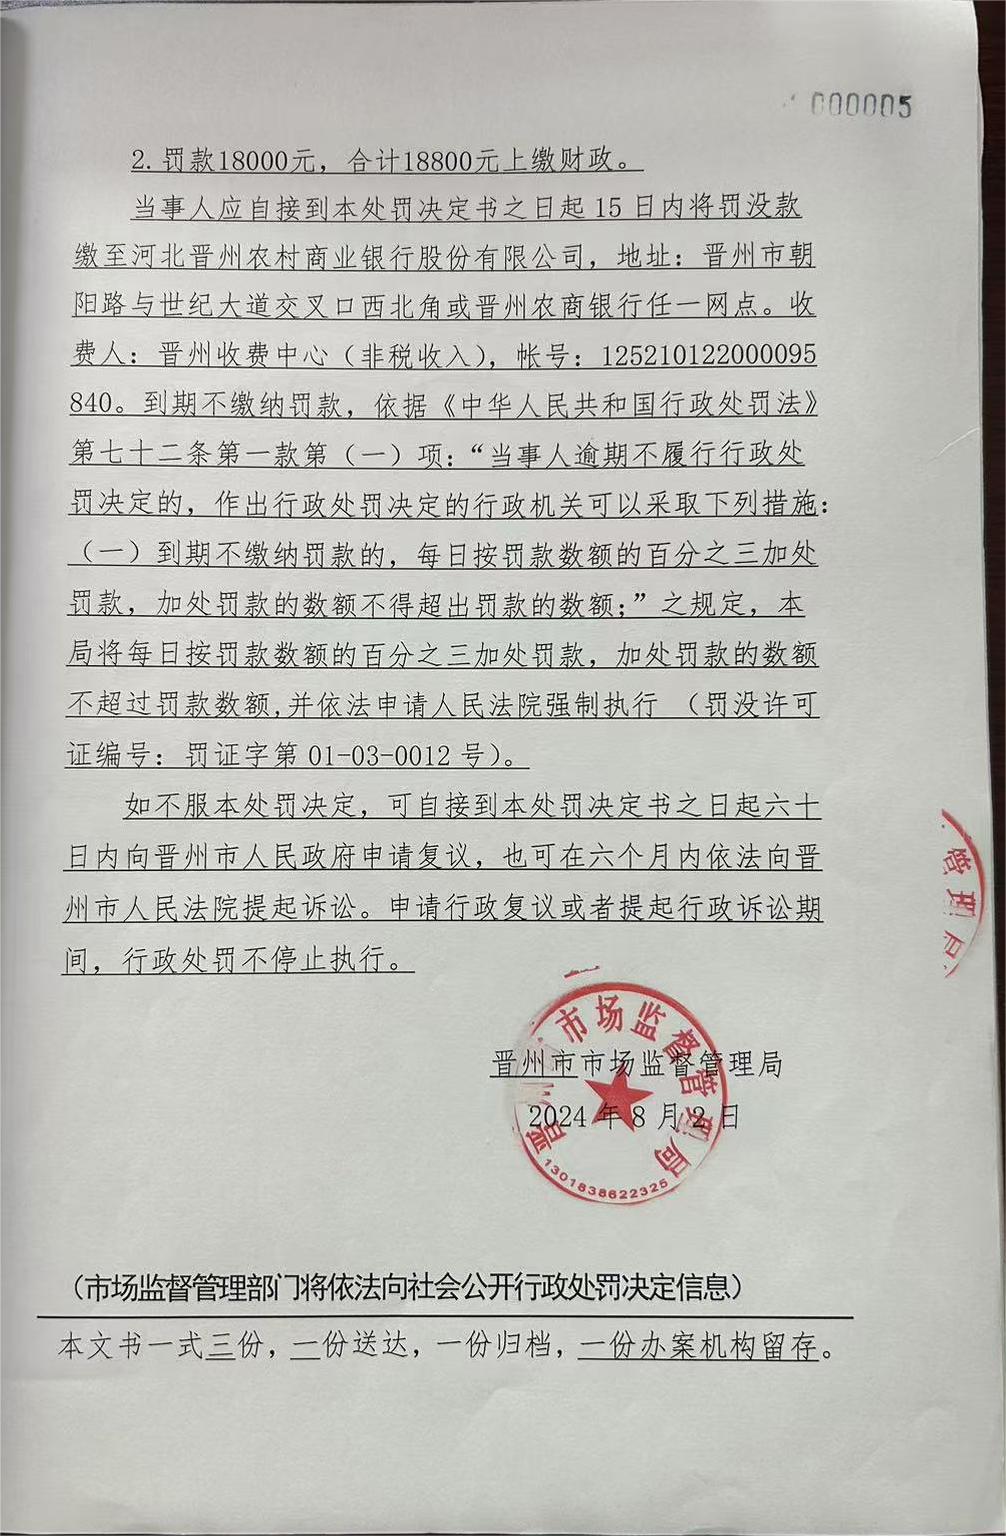 000005
2.罚款18000元，合计18800元上缴财政。
当事人应自接到本处罚决定书之日起 15 日内将罚没款
缴至河北晋州农村商业银行股份有限公司，地址：晋州市朝
阳路与世纪大道交叉口西北角或晋州农商银行任一网点。收
费人：晋州收费中心（非税收入），帐号：125210122000095
840。到期不缴纳罚款，依据《中华人民共和国行政处罚法》
第七十二条第一款第（一）项：“当事人逾期不履行行政处
罚决定的，作出行政处罚决定的行政机关可以采取下列措施：
（一）到期不缴纳罚款的，每日按罚款数额的百分之三加处
罚款，加处罚款的数额不得超出罚款的数额；”之规定，本
局将每日按罚款数额的百分之三加处罚款，加处罚款的数额
不超过罚款数额,并依法申请人民法院强制执行 （罚没许可
证编号：罚证字第 01-03-0012 号）。
如不服本处罚决定，可自接到本处罚决定书之日起六十
日内向晋州市人民政府申请复议，也可在六个月内依法向晋
州市人民法院提起诉讼。申请行政复议或者提起行政诉讼期
间，行政处罚不停止执行。
管理局
晋州市市场监督管理局
2024 年 8 月 2 日
晋州市市场监督管理局
1301838622325
（市场监督管理部门将依法向社会公开行政处罚决定信息）
本文书一式三份，一份送达，一份归档，一份办案机构留存。